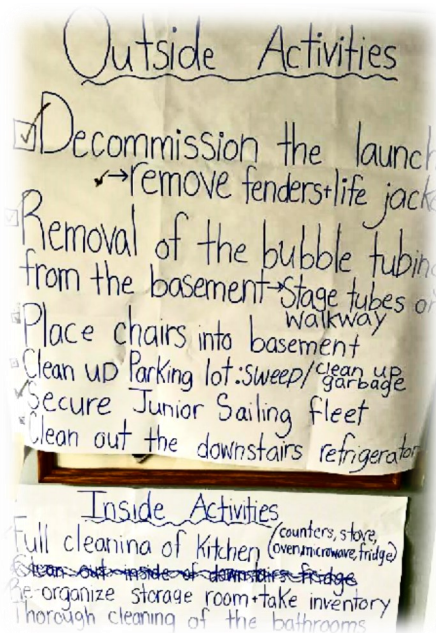 Outside Activities
Decommission the launch
→remove fenders+life jack
Removal of the bubble tubin
from the basement→Stage tubes o
walkway
Place chairs into basement
Clean up Parking lot:sweep/clean up
garbage
Secure Junior Sailing fleet
Clean out the downstairs refrigerator
Inside Activities
Full cleaning of Kitchen (counters, stove,
oven,microwave,fridge)
Clean out inside of downstairs fridge
Re-organize storage room+take inventory
Thorough cleaning of the bathrooms